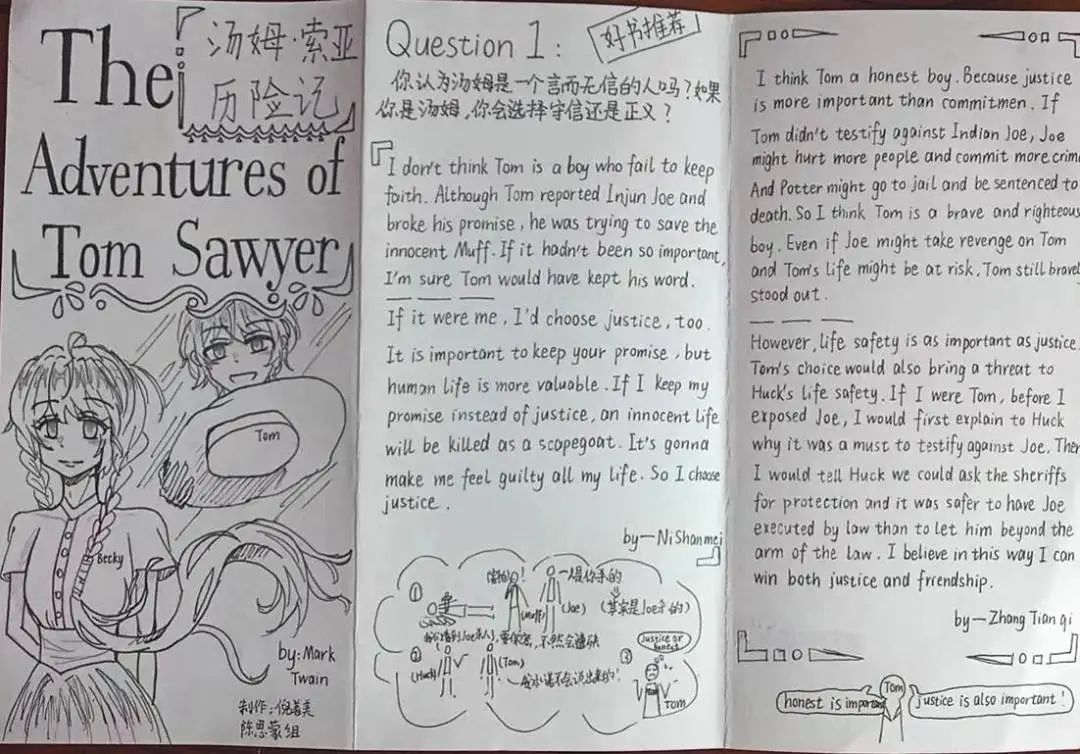 The
汤姆·索亚
历险记
Adventures of
Tom Sawyer
Tom
Becky
by:Mark
Twain
制作:倪善美
陈思蒙组
Question 1:
好书推荐
你认为汤姆是一个言而无信的人吗?如果
你是汤姆,你会选择守信还是正义?
I don't think Tom is a boy who fail to keep
faith. Although Tom reported Injun Joe and
broke his promise, he was trying to save the
innocent Muff. If it hadn't been so important,
I'm sure Tom would have kept his word.
If it were me, I'd choose justice, too.
It is important to keep your promise, but
human life is more valuable. If I keep my
promise instead of justice, an innocent life
will be killed as a scapegoat. It's gonna
make me feel guilty all my life. So I choose
justice.
by—NiShanmei
①
一人是你杀的
(Muff)
(Joe)
(其实是Joe杀的)
②
(Huck)
(Tom)
③
justice or
honest
Tom
I think Tom a honest boy. Because justice
is more important than commitmen. If
Tom didn't testify against Indian Joe, Joe
might hurt more people and commit more crim
And Potter might go to jail and be sentenced to
death. So I think Tom is a brave and righteous
boy. Even if Joe might take revenge on Tom
and Tom's life might be at risk, Tom still bravel
stood out.
However, life safety is as important as justice.
Tom's choice would also bring a threat to
Huck's life safety. If I were Tom, before I
exposed Joe, I would first explain to Huck
why it was a must to testify against Joe. Then
I would tell Huck we could ask the sheriffs
for protection and it was safer to have Joe
executed by law than to let him beyond the
arm of the law. I believe in this way I can
win both justice and frrendship.
by—Zhang Tian qi
honest is important
Tom
justice is also important!